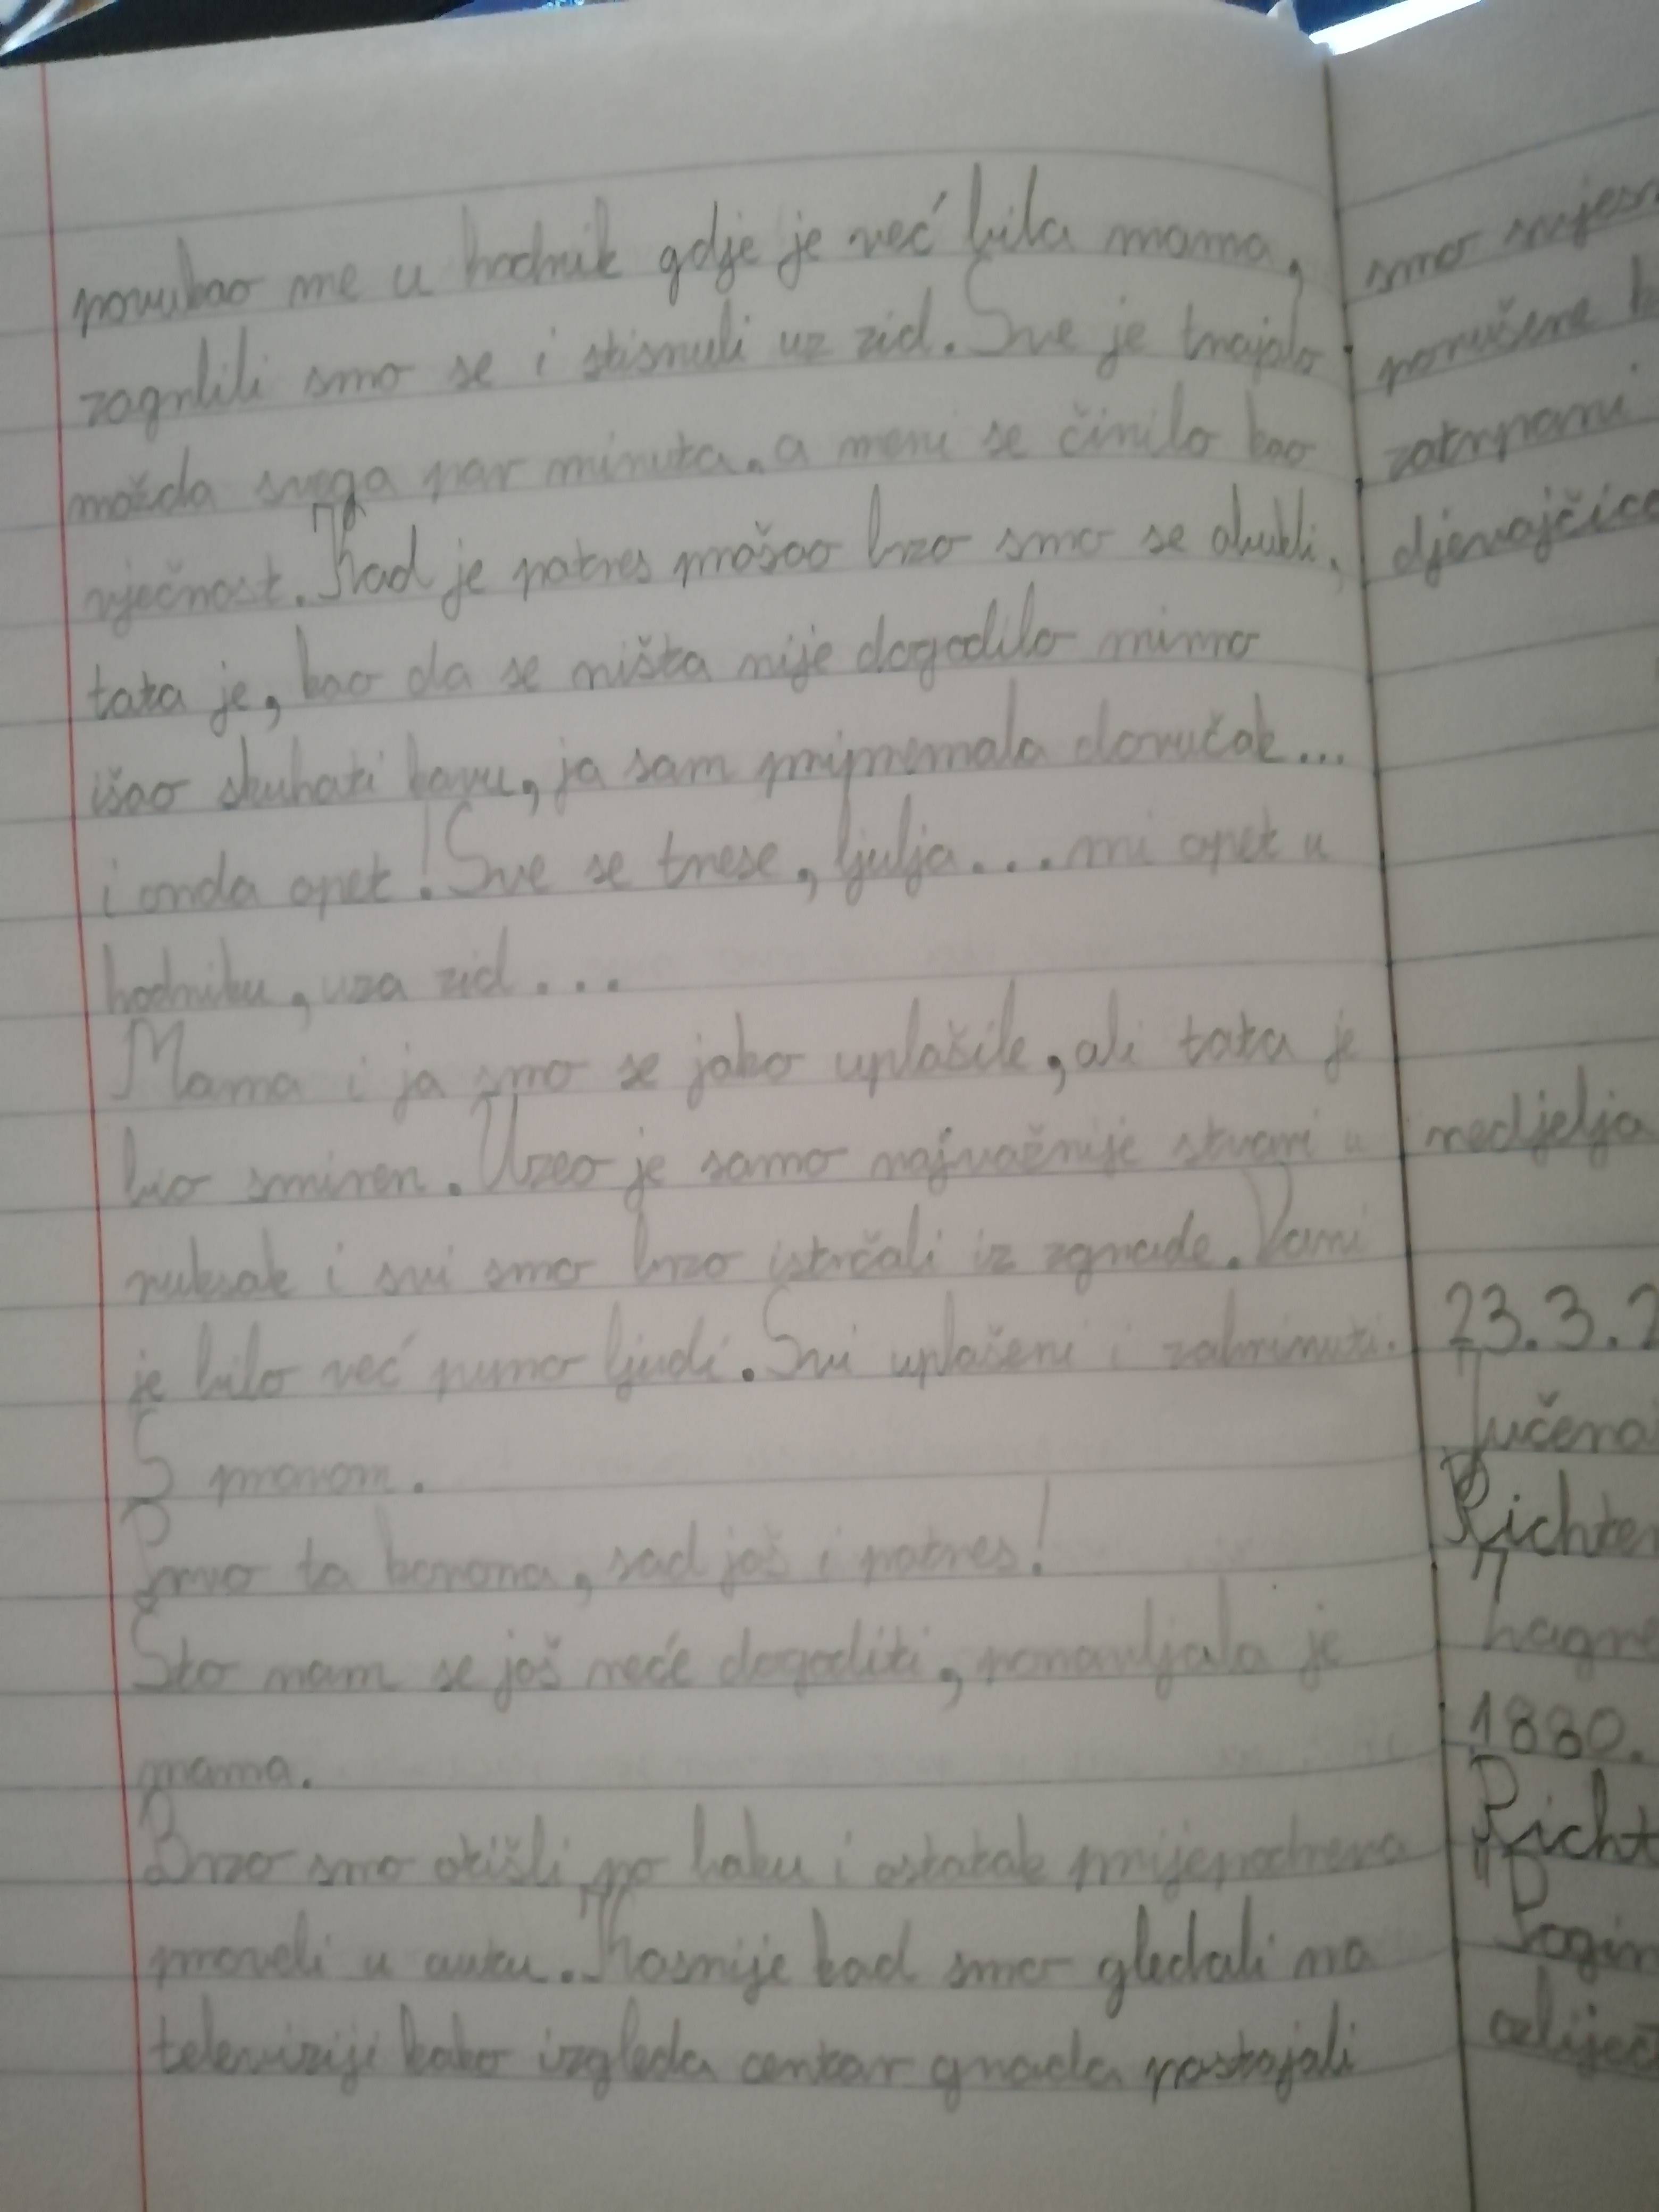 povukao me u hodnik gdje je već bila mama,
zagrlili smo se i stisnuli uz zid. Sve je trajalo
možda svega par minuta, a meni se činilo kao
vječnost. Kad je potres prošao brzo smo se obukli,
tata je, kao da se ništa nije dogodilo mirno
išao skuhati kavu, ja sam pripremala doručak...
i onda opet! Sve se trese, ljulja... mi opet u
hodniku, uza zid...
Mama i ja smo se jako uplašile, ali tata je
bio smiren. Uzeo je samo najvažnije stvari u
ruksak i svi smo brzo istrčali iz zgrade. Vani
je bilo već puno ljudi. Svi uplašeni i zabrinuti.
S pravom.
Prvo ta korona, sad još i potres!
Što nam se još neće dogoditi, ponavljala je
mama.
Brzo smo otišli po baku i ostatak prijepodneva
proveli u autu. Kasnije kad smo gledali na
televiziji kako izgleda centar grada postajali
smo
porušene
zatrpani
djevojčice
nedjelja
23.3.2
Jučeraš
Richter
Zagre
1880.
Richt
"Pogin
ozlijeđ